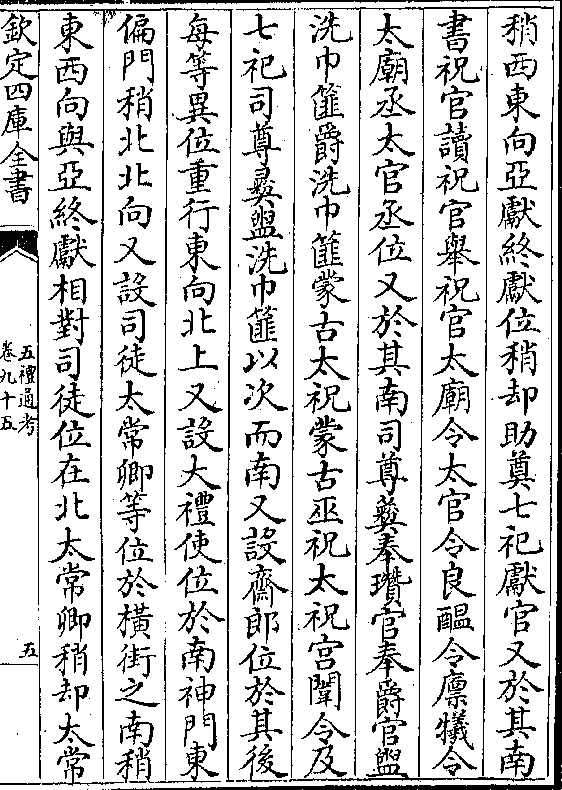 稍西東向亞獻終獻位稍却助奠七祀獻官又於其南
書祝官讀祝官舉祝官太廟令太官令良醖令廪犧令
太廟丞太官丞位又於其南司尊彝奉瓚官奉爵官盥
洗巾篚爵洗巾篚蒙古太祝蒙古巫祝太祝宫闈令及
七祀司尊彝盥洗巾篚以次而南又設齋郎位於其後
每等異位重行東向北上又設大禮使位於南神門東
偏門稍北北向又設司徒太常卿等位於橫街之南稍
東西向與亞終獻相對司徒位在北太常卿稍却太常
欽定四庫全書
五禮通考
卷九十五
五